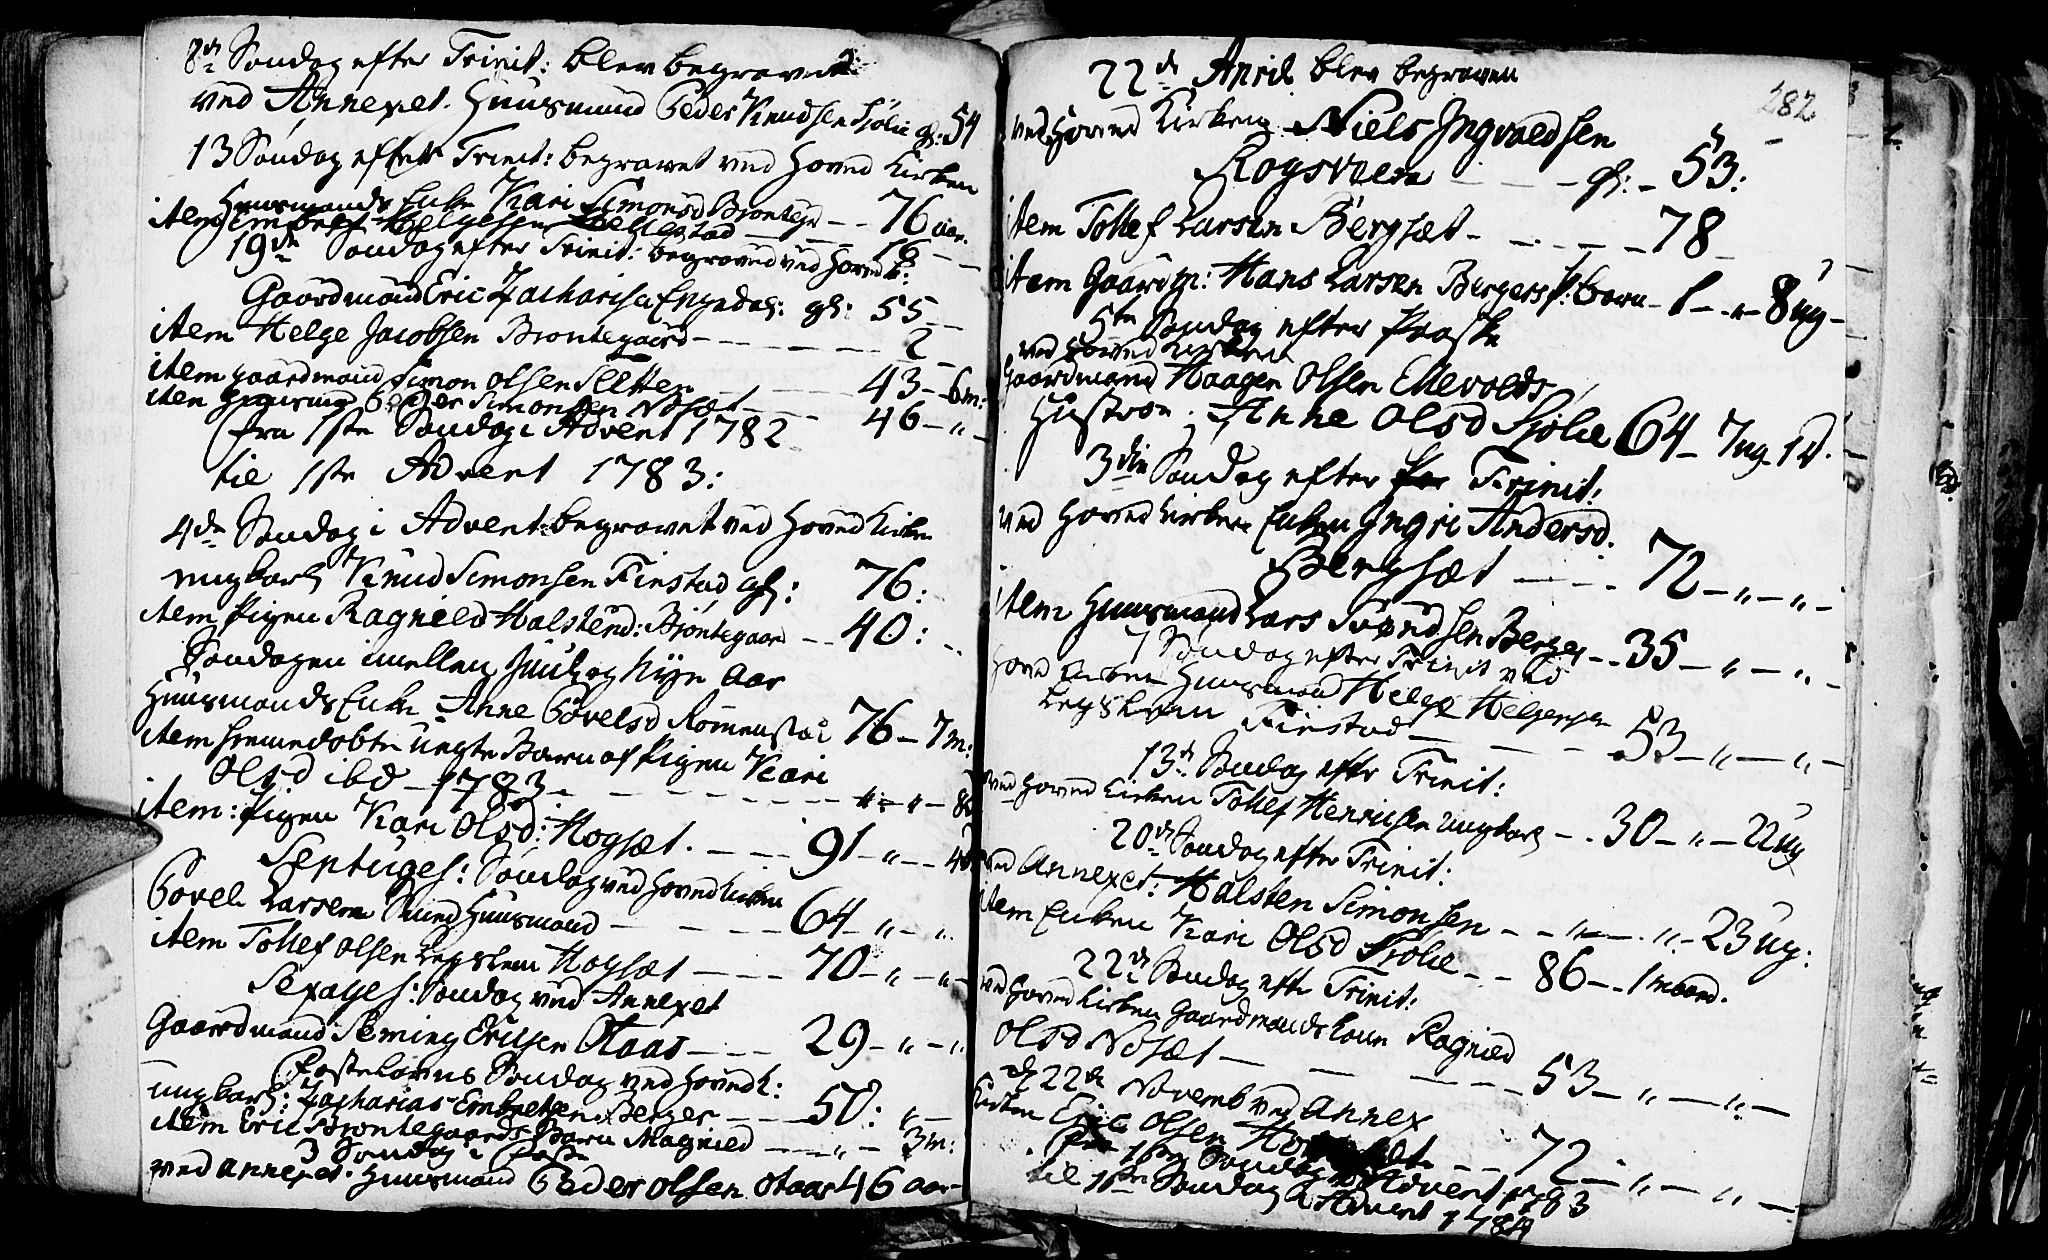 8de Søndag efter Trinit: blev begraved
ved Annexet. Huusmand Peder Knudsen Sjölie gl: 54
13 Søndag efter Trinit: begravet ved Hoved Kirken
Huusmands Enke Kari Simonsd Brontegrd -- 76 aar.
item Embret Helgesen
19de Søndag efter Trinit: begraved ved Hoved K: 76
Gaardmand Eric Zacharisen Engedal: gl: 55 --
item Helge Jacobsen Brontegaard -------- 2
item gaardmand Simon Olsen Sletten --- 43 - 6 m:
item Huusmd Peder Simonsen Nosæt --- 46 - " -
fra 1ste Søndag i Advent 1782
til 1ste Advent 1783:
4de Søndag i Advent begravet ved Hoved Kirken
ungkarl Knud Simonsen Finstad gl: 76:
item Pigen Ragnild Halstend: Bröntegaard -- 40: --
Søndagen imellem Juul og Nyt Aar
Huusmands Enke Anne Povelsd Romenstad 76 - 7 m:
item hiemedøbte uegte Barn af Pigen Kari
Olsd ibd - 1783 - -------- " - " - 8
item: Pigen Kari Olsd: Hogsæt. --- 91 - " -- 4
Septuges: Søndag ved Hoved Kirken
Povel Larsen Huusmand ----- 64 - " - "
item Tollef Olsen Legslem Hogsæt ---- 70 - " - " -
Sexages: Søndag ved Annexet
Gaardmand Seming Ericsen Otaas --- 29 - " - "
Fastelavns Søndag ved Hoved K:
ungkarl: Zacharias Embretsen Berger --- 50: " -
item Eric Brontegaards Barn Magnild --- " - 3 m:
3 Søndag i Faste
ved Annexet. Huusmand Peder Olsen Otaas 46 aar -
282
22de April blev begraven
ved Hoved Kirken Niels Ingvaldsen
Rogsveen --- gl: - 53:
item Tollef Larsen Bergsæt - ---- 78
item Gaardm: Hans Larsen Bergers f: barn - 1 - " - 8 ug -
5te Søndag efter Paaske
ved Hoved Kirken
Gaardmand Haagen Olsen Ellevolds
Hustroe: Anne Olsd Sjölie 64 - 7 ug 1 D.
3die Søndag efter Trinit:
ved Hoved Kirken Enken Ingri Andersd:
Bergsæt ---- 72 - " - " -
item Huusmand Lars Svendsen Berger -- 35 - " - " -
7 Søndag efter Trinit ved
Hoved Kirken Huusmand Helge Helgesen
Legslem Finstad ----- 53 - " - " -
13de Søndag efter Trinit:
ved Hoved Kirken Tollef Henricsen ungkarl -- 30 - " - 22 ug
20de Søndag efter Trinit:
ved Annexet: Halsten Simonsen -- " - " - 23 ug:
item Enken Kari Olsd Sjolie -- 86 -- 1 maand.
22de Søndag efter Trinit:
ved Hoved Kirken Gaardmands Kone Ragnild
Olsd Nosæt ------ 53 - " - " -
d 22de Novemb ved Annex
Kirken Eric Olsen -- 72 - " - " -
Fra 1ste Søndag i Advent 1783
til 1ste Søndag i Advent 1784